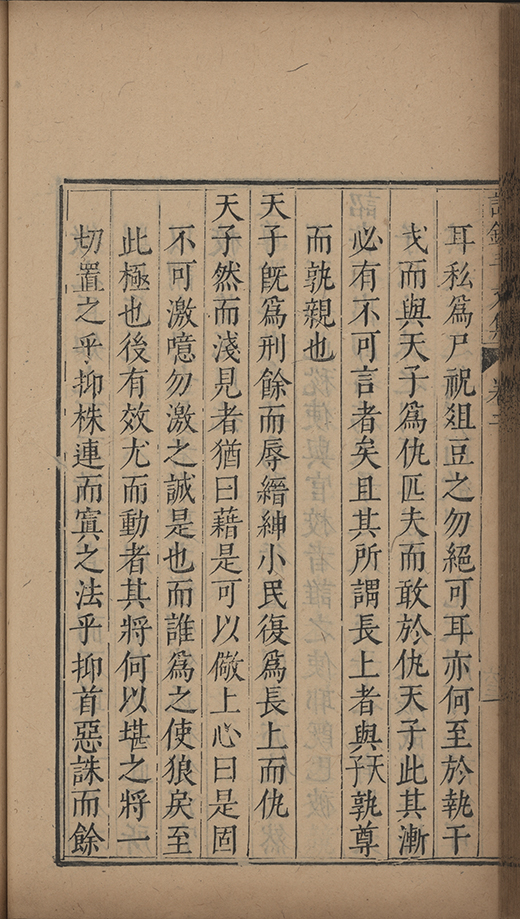 耳私為尸祝爼豆之勿絕可耳亦何至於執干
戈而與天子為仇匹夫而敢於仇天子此其漸
必有不可言者矣且其所謂長上者與天子孰尊
而孰親也
天子旣為刑餘而辱縉紳小民復為長上而仇
天子然而淺見者猶曰藉是可以儆上心曰是固
不可激噫勿激之誠是也而誰為之使狼戾至
此極也後有效尤而動者其將何以堪之將一
切置之乎抑株連而寘之法乎抑首惡誅而餘